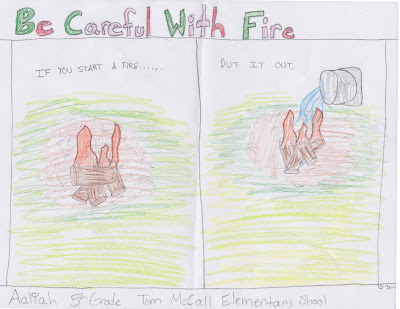 Be Careful With Fire
IF YOU START A FIRE......
PUT IT OUT.
Aaliah 5th Grade Tom McCall Elementary Shool